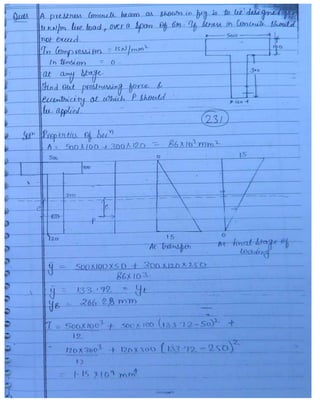 Ques A prestress Concrete beam as shown in fig is to be designed
kN/m live load, over a span of 6m. If stress in Concrete should
not exceed.
In Compression = 15 N/mm²
In tension = 0
at any stage.
Find out prestressing force &
eccentricity at which P should
be applied.
500
100
300
120
(231)
Solⁿ Properties of Secⁿ
A = 500x100 + 300x120 = 86x10³ mm²
500
100
300
120
P
0
15
At transfer
15
0
At final stage of
loading
ȳ = 500x100x50 + 300x120x250
86x10³
ȳ = 133.72 = yt
yB = 266.28 mm
I = 500x100³ + 500x100 (133.72-50)² +
12
120x300³ + 120x300 (133.72-250)²
12
= 1.15 x10⁹ mm⁴